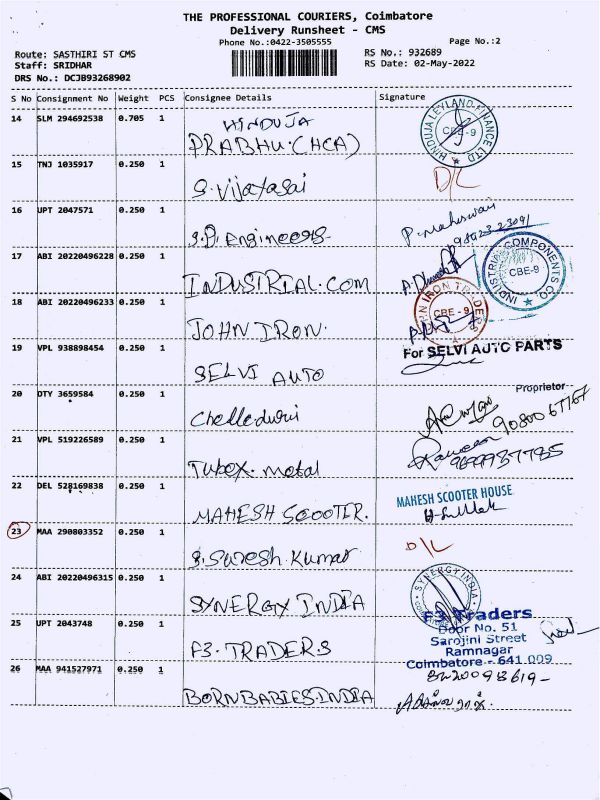 THE PROFESSIONAL COURIERS, Coimbatore
Delivery Runsheet - CMS
Phone No.:0422-3505555
Page No.:2
Route: SASTHIRI ST CMS
Staff: SRIDHAR
DRS No.: DCJB93268902
RS No.: 932689
RS Date: 02-May-2022
S No Consignment No Weight PCS Consignee Details Signature
14 SLM 294692538 0.705 1 HINDUJA
PRABHU.(HCA)
HINDUJA LEYLAND FINANCE LTD
CBE-9
15 TNJ 1035917 0.250 1
S.Vijayasai D/L
16 UPT 2047571 0.250 1
S.D. Engineers P. Maheswari
17 ABI 20220496228 0.250 1
INDUSTRIAL.COM
INDUSTRIAL COMPONENTS CO.
CBE-9
18 ABI 20220496233 0.250 1
JOHN IRON.
IRON TRADERS
CBE - 9
19 VPL 938898454 0.250 1
SELVI AUTO
For SELVI AUTO PARTS
Proprietor
20 DTY 3659584 0.250 1
Chelledurai
21 VPL 519226589 0.250 1
Tubex. metal
22 DEL 528169838 0.250 1
MAHESH SCOOTER.
MAHESH SCOOTER HOUSE
23 MAA 290803352 0.250 1
S.Suresh.Kumar D/L
24 ABI 20220496315 0.250 1
SYNERGY INDIA
SYNERGY INDIA
25 UPT 2043748 0.250 1
F3. TRADERS
F3 Traders
Door No. 51
Sarojini Street
Ramnagar
Coimbatore - 641 009
26 MAA 941527971 0.250 1
BORNBABIES.INDIA